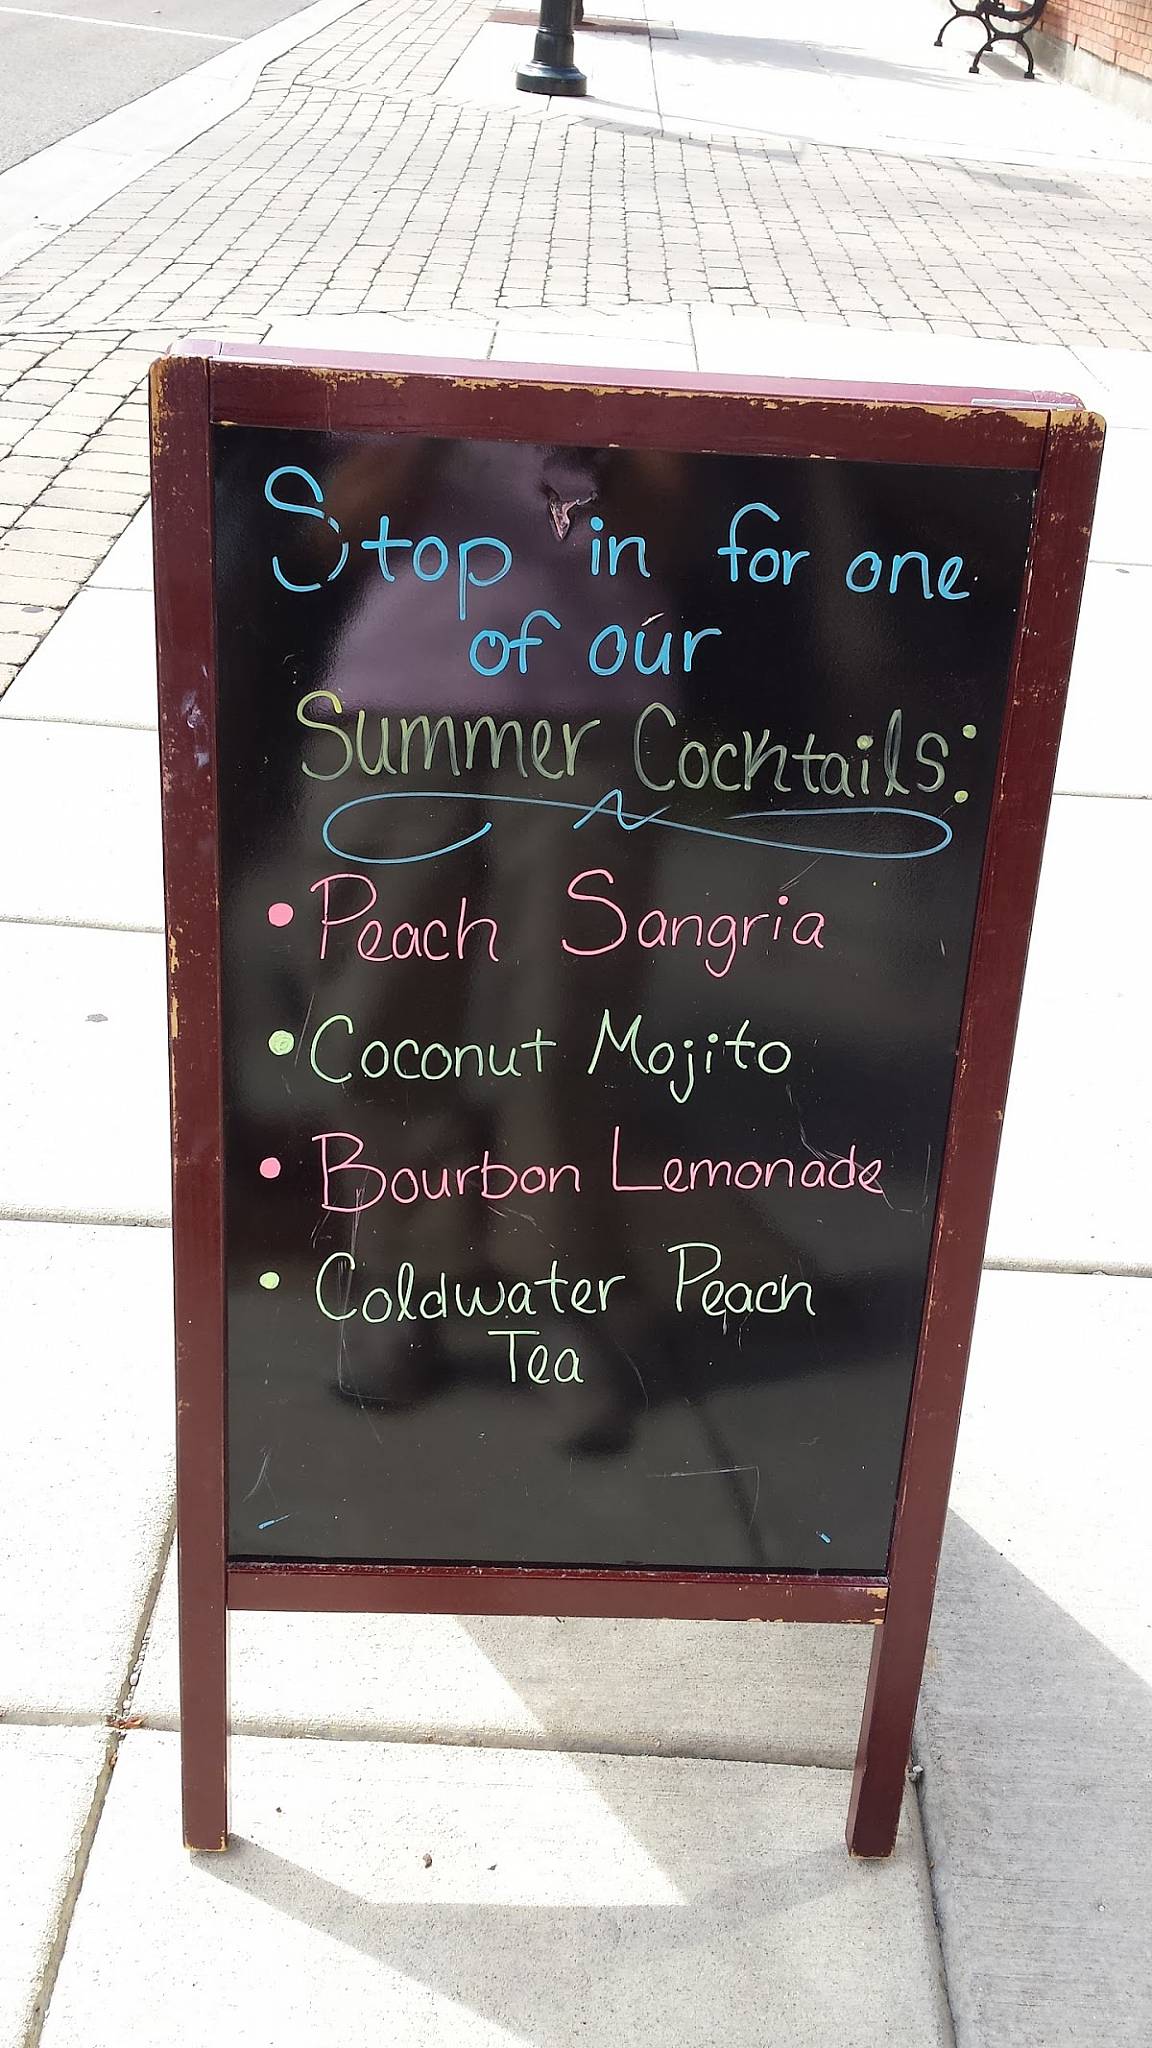 Stop in for one
of our
Summer Cocktails:
• Peach Sangria
• Coconut Mojito
• Bourbon Lemonade
• Coldwater Peach
Tea